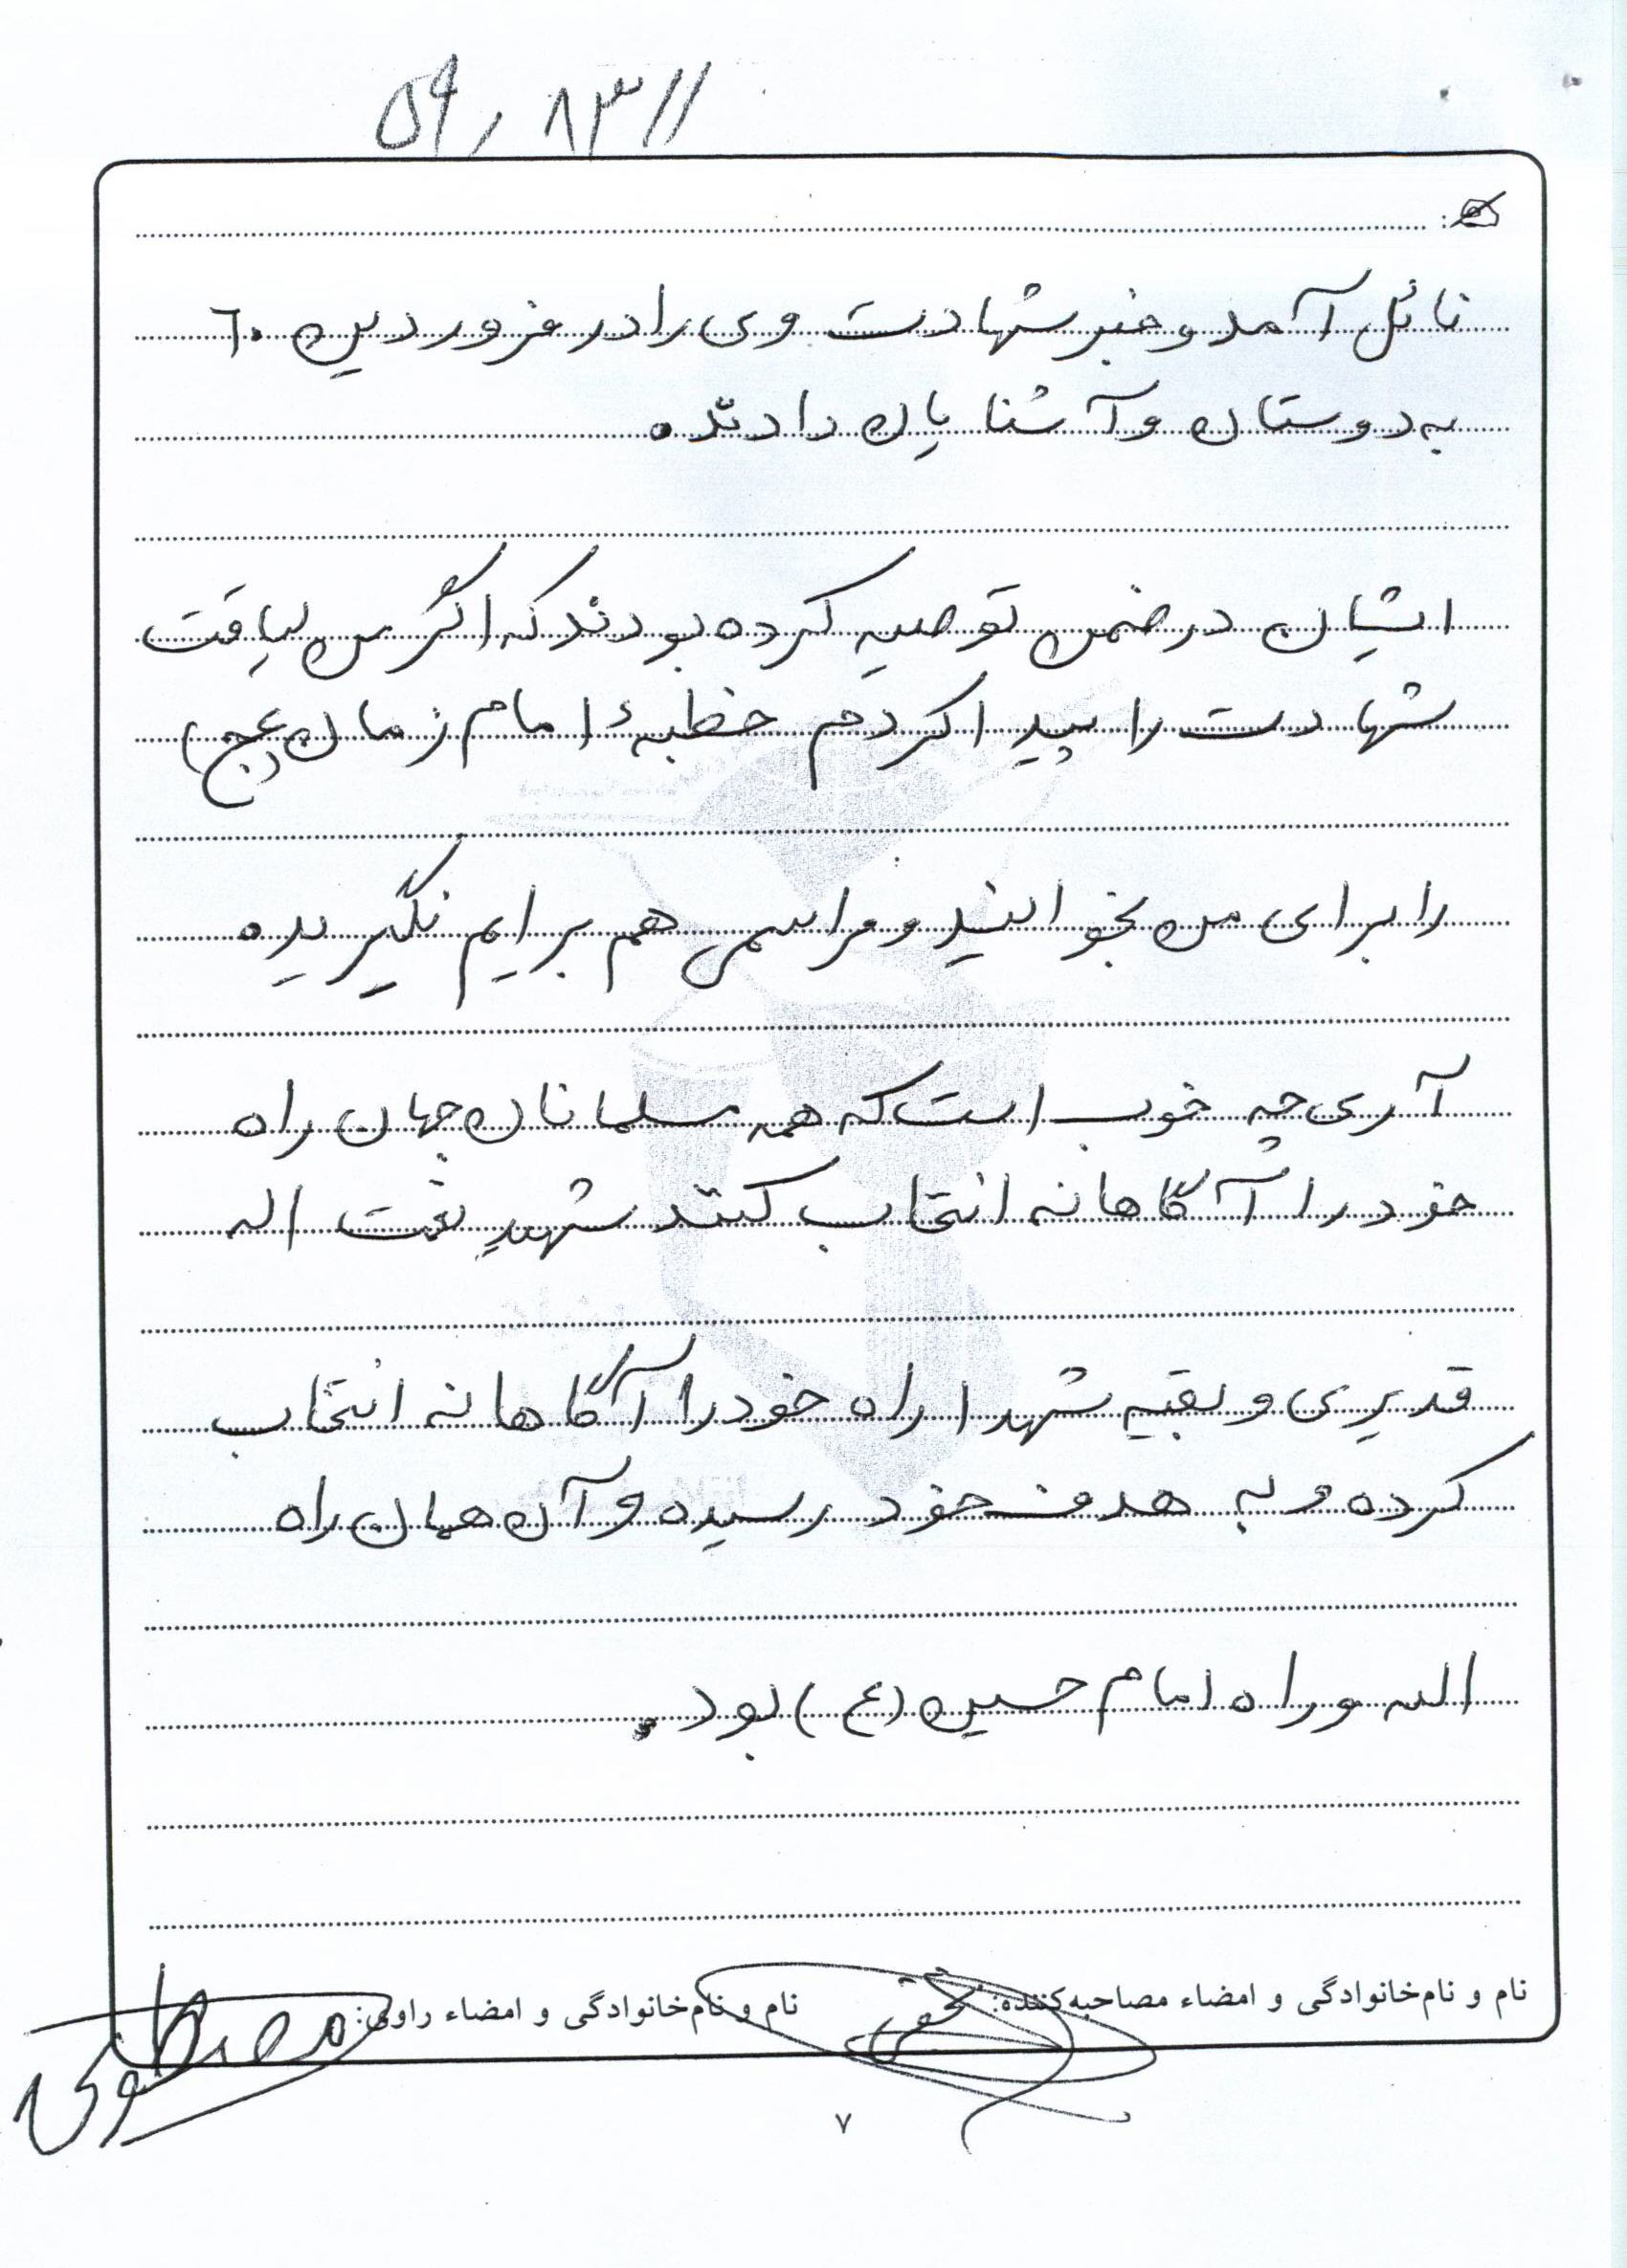 ۵۹ / ۸۳۱۱
نائل آمد و خبر شهادت وی را در فروردین ۶۰
به دوستان و آشنایان دادند.
ایشان در ضمن توصیه کرده بودند که اگر من لیاقت
شهادت را پیدا کردم خطبهٔ امام زمان (عج)
را برای من بخوانید و مراسمی هم برایم نگیرید.
آری چه خوب است که همه مسلمانان جهان راه
خود را آگاهانه انتخاب کنند شهید نعمت اله
قدیری و بقیه شهدا راه خود را آگاهانه انتخاب
کرده و به هدف خود رسیده و آن همان راه
الله و راه امام حسین (ع) بود.
نام و نام‌خانوادگی و امضاء مصاحبه‌کننده:
نام و نام‌خانوادگی و امضاء راوی: مصطفوی
۷